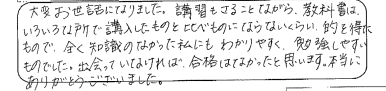 大変お世話になりました。講習もさることながら、教科書は、
いろいろな所で購入したものと比べものにならないくらい、的を得た
もので、全く知識のなかった私にもわかりやすく、勉強しやすい
ものでした。出会っていなければ、合格はなかったと思います。本当に
ありがとうございました。